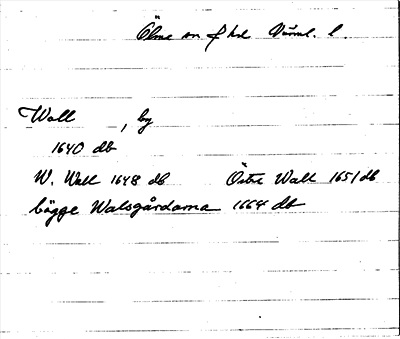 Ölme sn o hd Värml. l.
Wall , by
1640 db
W. Wall 1648 db Östre Wall 1651 db
bägge Walsgårdarna 1664 db